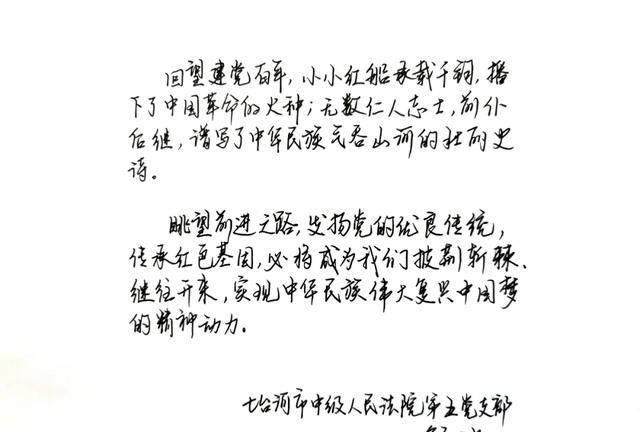 回望建党百年，小小红船承载千钧，播
下了中国革命的火种；无数仁人志士，前仆
后继，谱写了中华民族气吞山河的壮丽史
诗。
眺望前进之路，发扬党的优良传统，
传承红色基因，必将成为我们披荆斩棘、
继往开来，实现中华民族伟大复兴中国梦
的精神动力。
七台河市中级人民法院第五党支部